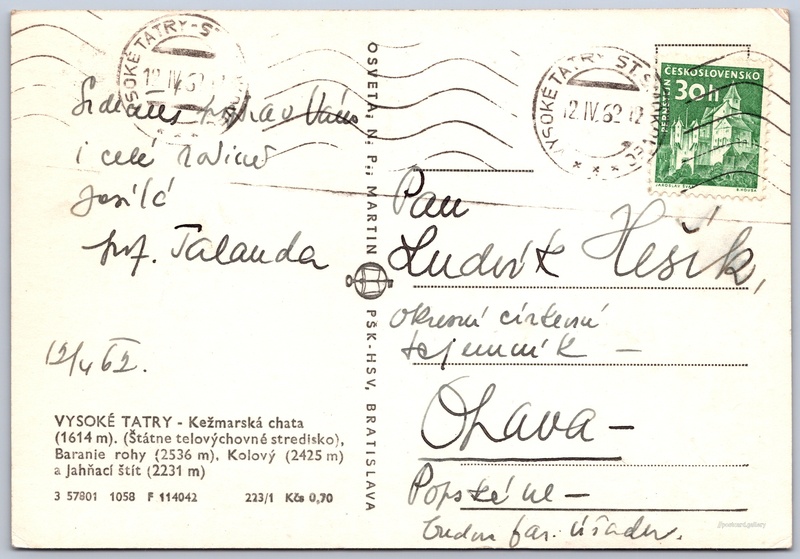 VYSOKÉ TATRY - ST
12.IV.62
Srdečný pozdrav Vám
i celé rodině
posílá
prof. Talanda
12/4 62.
VYSOKÉ TATRY - Kežmarská chata
(1614 m). (Štátne telovýchovné stredisko),
Baranie rohy (2536 m), Kolový (2425 m)
a Jahňací štít (2231 m)
3 57801 1058 F 114042 223/1 Kčs 0,70
OSVETA, N. P., MARTIN
PŠK-HSV, BRATISLAVA
VYSOKÉ TATRY ST.
12.IV.62-12
ČESKOSLOVENSKO
30 h
PERNŠTEJN
Pan
Ludvík Hešík,
okresní církevní
tajemník –
Opava –
Popská ul –
budova far. úřadu.